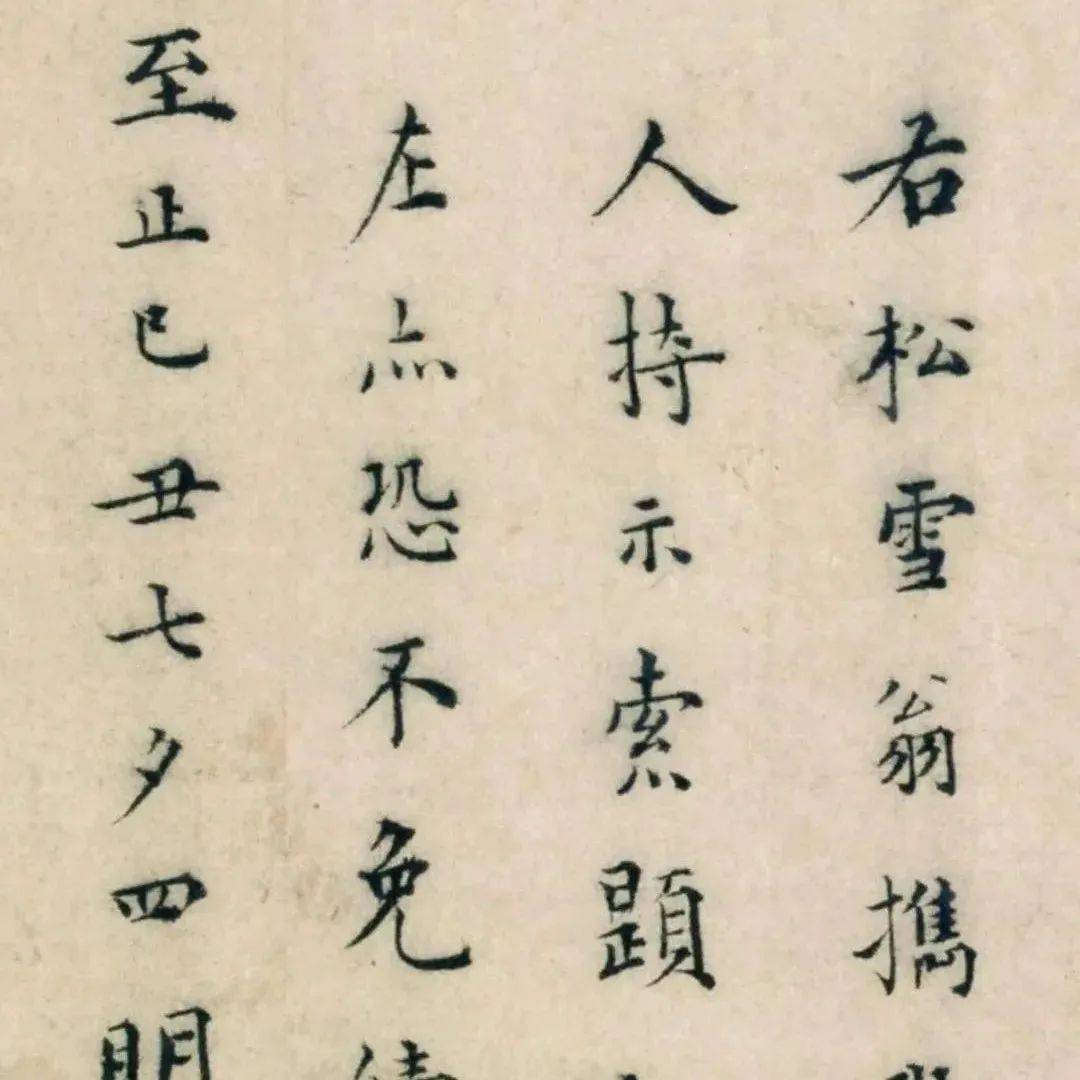 右松雪翁携
人持示索題
左亦恐不免
至正己丑七夕四明